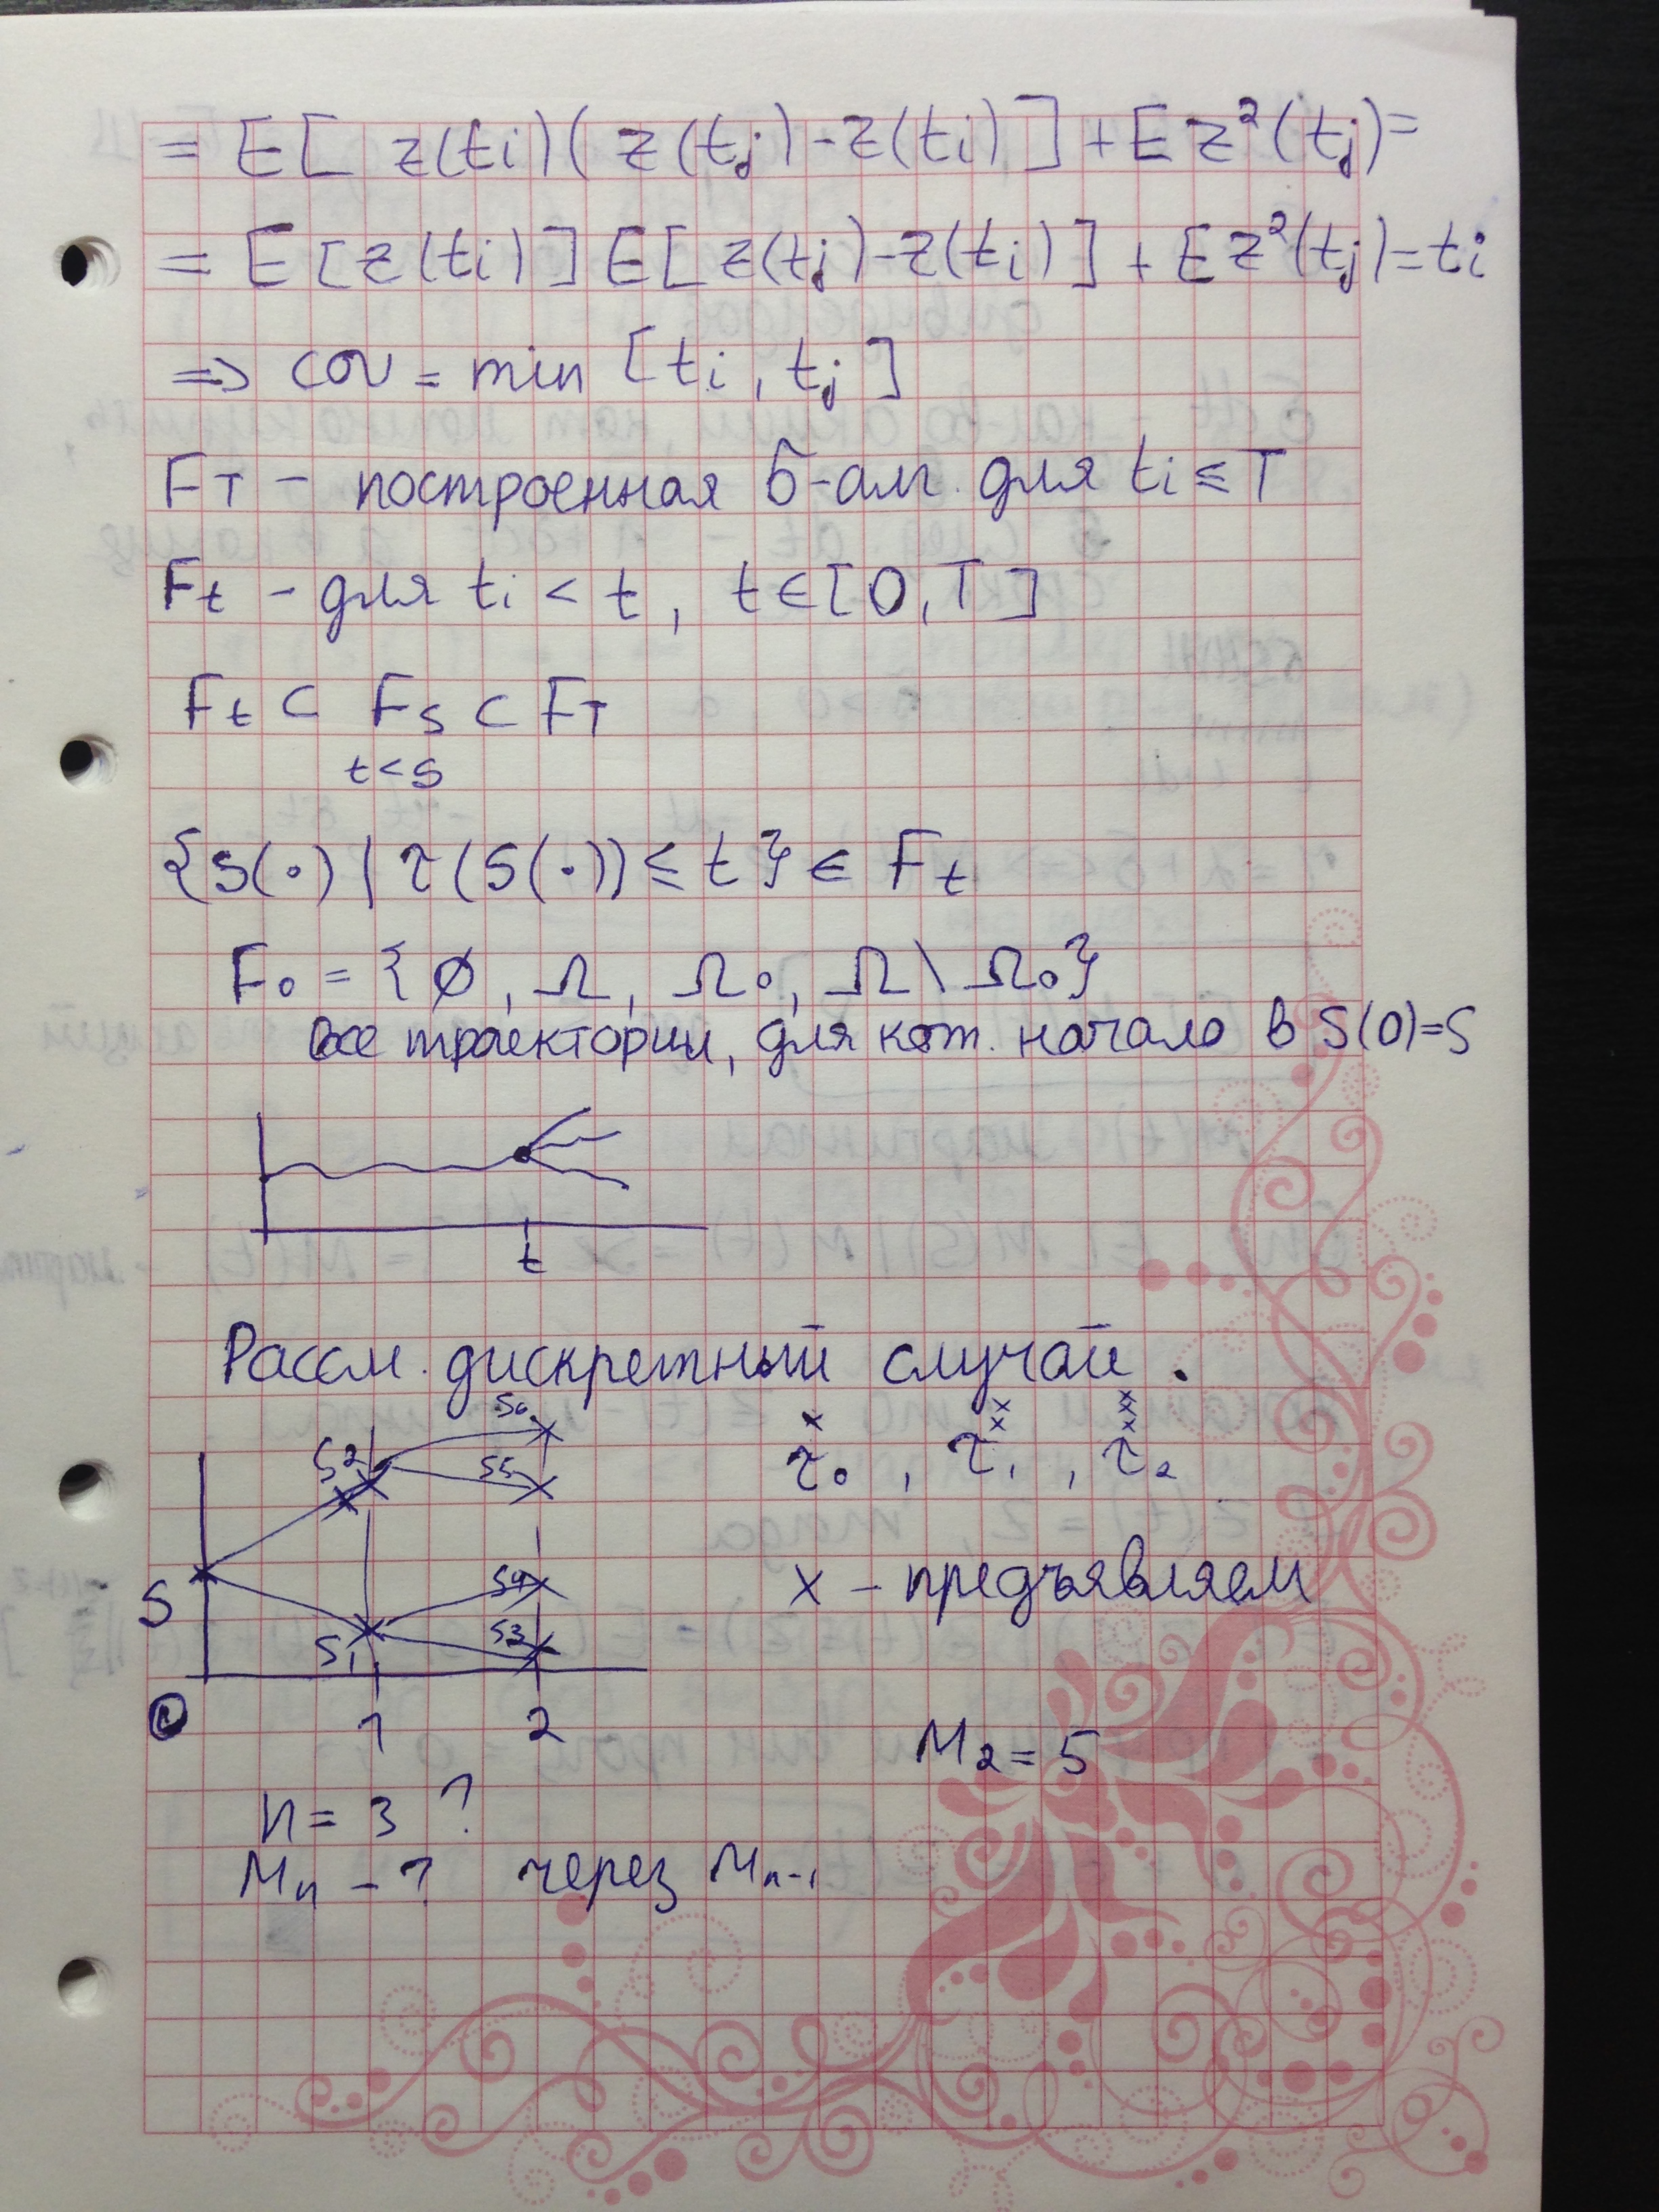 = E[ z(ti)( z(tj)-z(ti) ] + E z²(tj) =
= E[z(ti)] E[ z(tj)-z(ti) ] + E z²(tj) = ti
=> cov = min [ti, tj]
FT - построенная б-алг. для ti ≤ T
Ft - для ti < t, t∈[0,T]
Ft ⊂ Fs ⊂ FT
t<s
{S(·) | τ(S(·)) ≤ t} ∈ Ft
F0 = {∅, Ω, Ω0, Ω \ Ω0}
все траектории, для кот. начало в S(0)=S
t
Рассм. дискретный случай.
S6
S2
S5
S
S4
S1
S3
1 2
x xx xxx
τ0, τ1, τ2
x - предъявляем
M2 = 5
n = 3 ?
Mn - ? через Mn-1